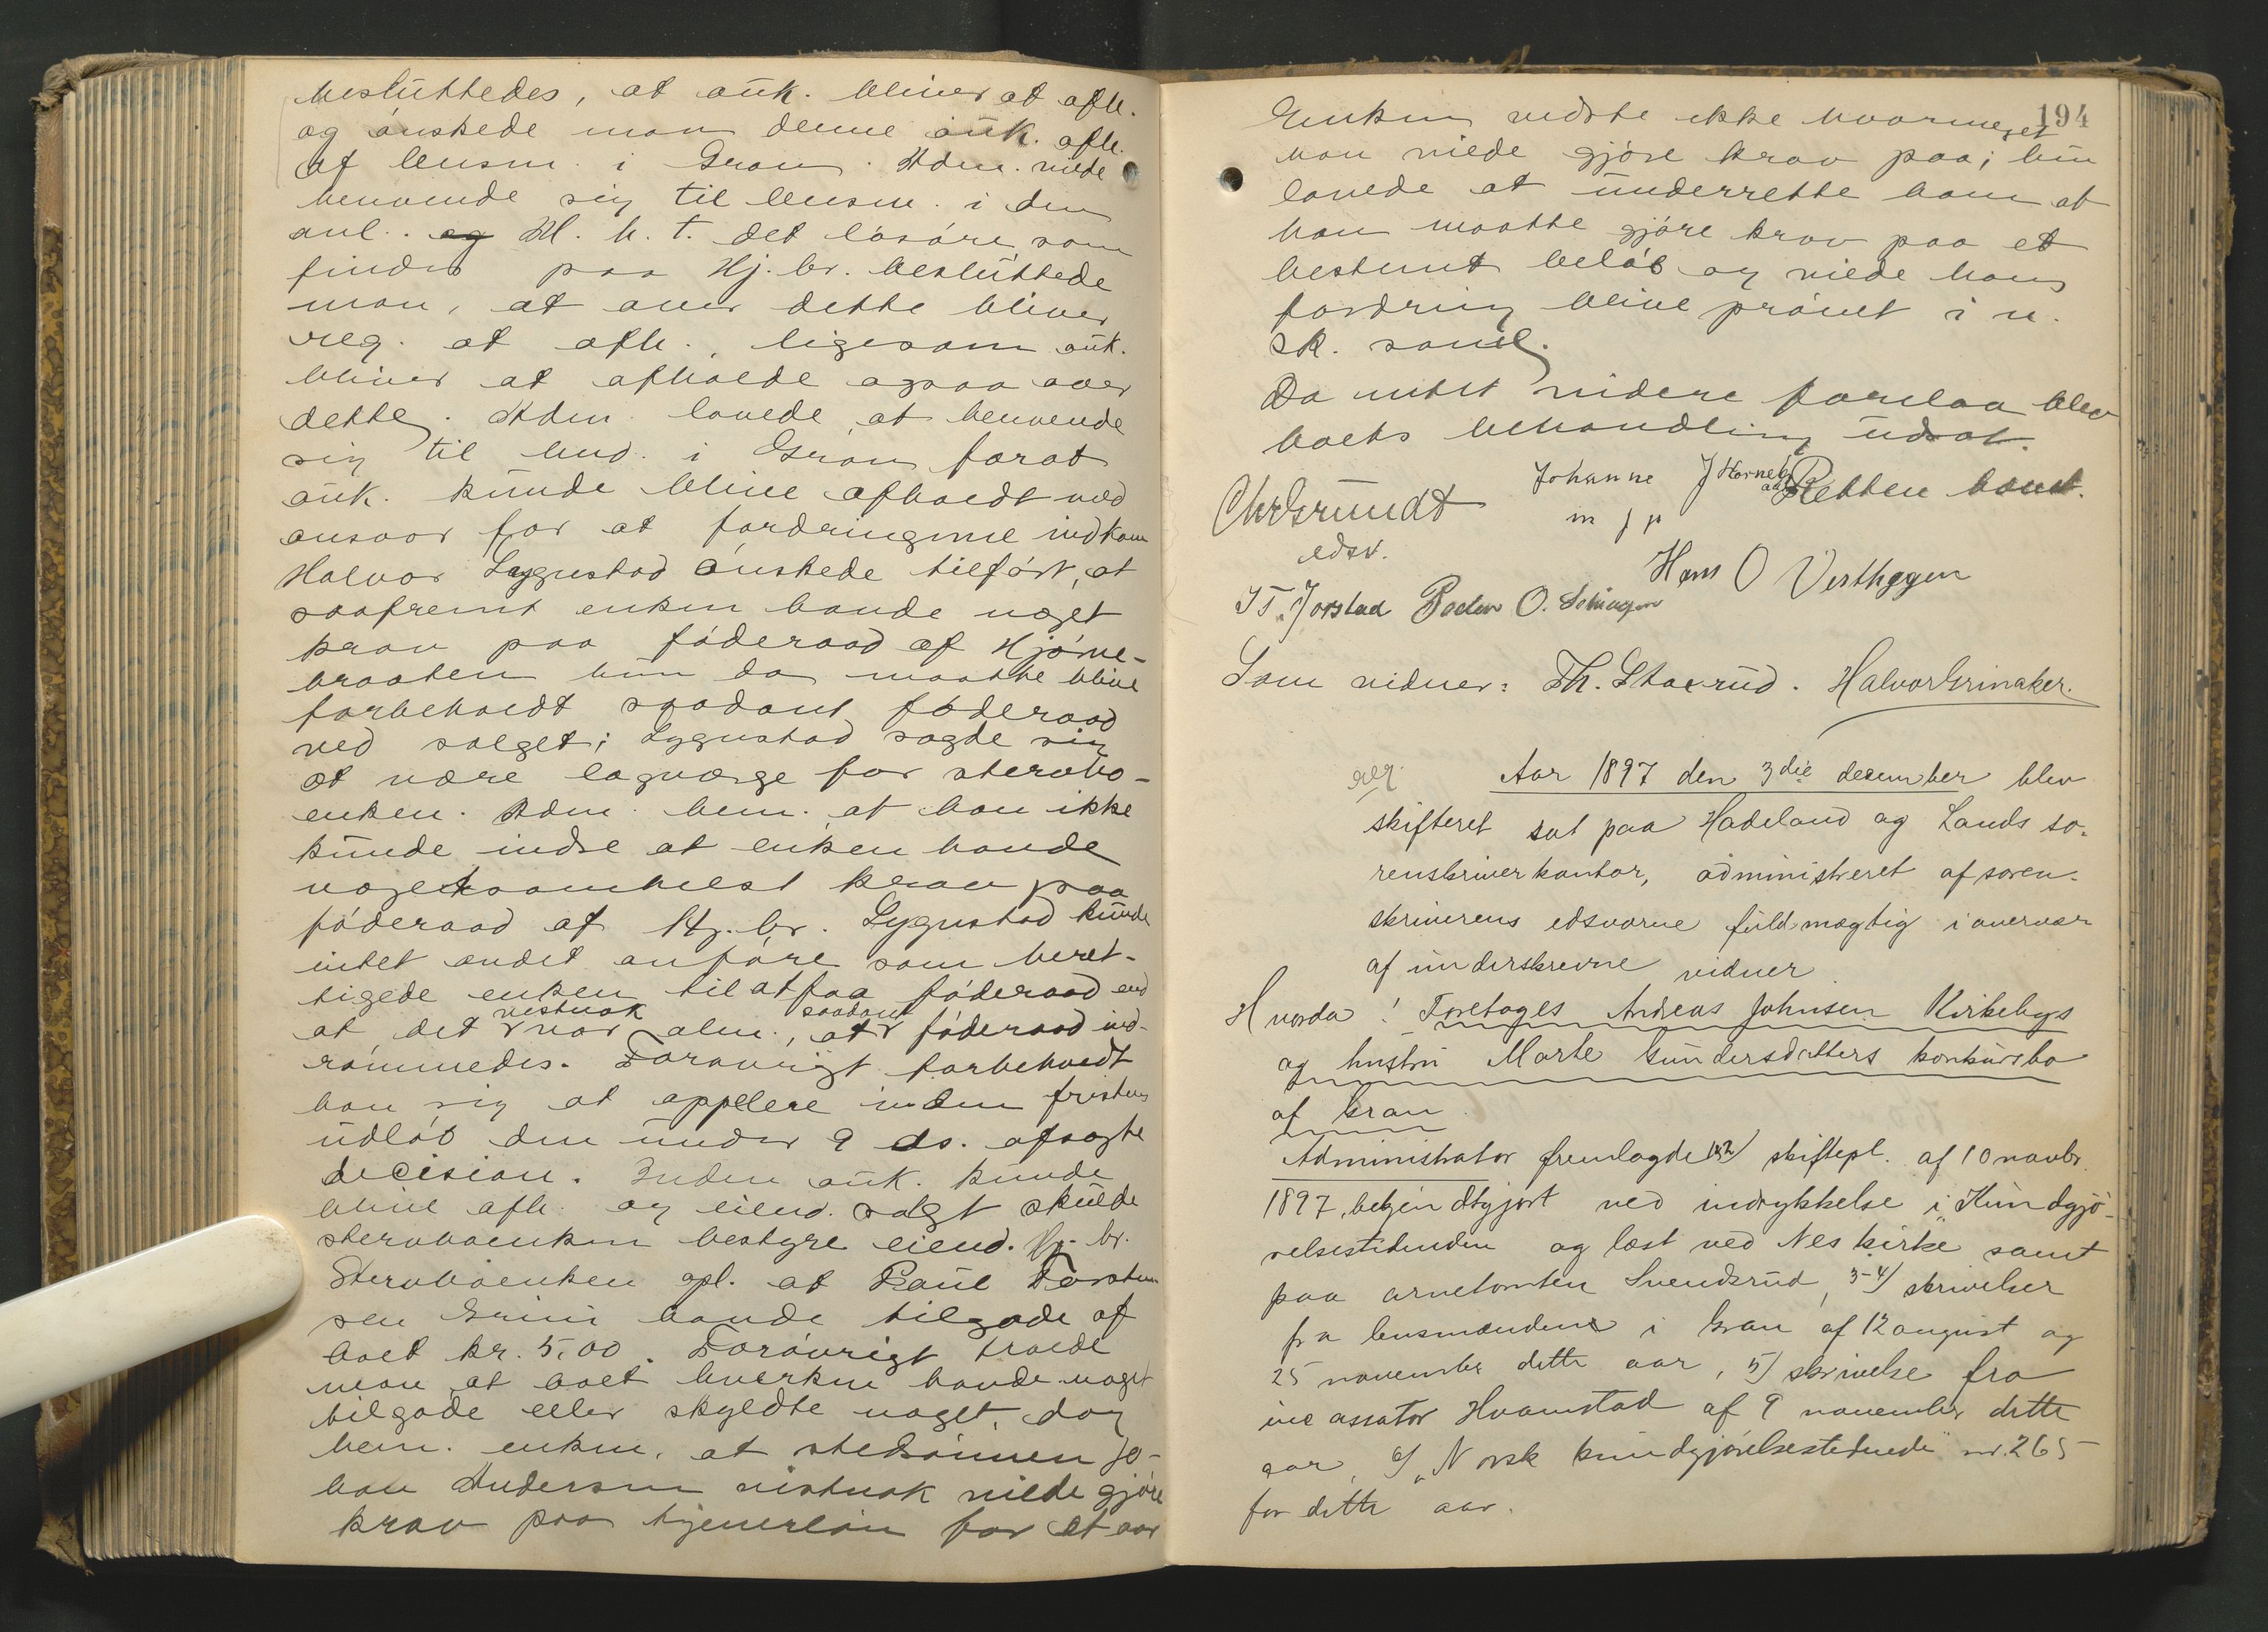 besluttedes, at auk. bliver at afh.
og ønskede man denne auk. afh.
af lensm. i Gran. Adm. vilde
henvende sig til lensm. i den
anl. og M. h. t. det løsøre, som
findes paa Hj. br. besluttede
man, at over dette bliver
reg. at afh., ligesom auk.
bliver at afholde ogsaa over
dette. Adm. lovede at henvende
sig til lmd. i Gran forat
auk. kunde blive afholdt med
ansvar for at fordringerne indkom
Halvor Lygnstad ønskede tilført, at
saafremt enken havde noget
krav paa føderaad af Hjørne-
braaten hun da maatte blive
forbeholdt saadant føderaad
ved salget; Lygnstad sagde sig
at være lagværge for stervbo-
enken. Adm. bem. at han ikke
kunde indse at enken havde
nogetsomhelst krav paa
føderaad af Hj. br. Lygnstad kunde
intet andet anføre som beret-
tigede enken til at faa føderaad end
at det vistnok var alm., at saadant føderaad ind-
rømmedes. Forøvrigt forbeholdt
han sig at appellere inden fristens
udløb den under 9 ds. afsagte
decision. Inden auk. kunde
blive afh. og eiend. solgt skulde
stervboenken bestyre eiend. Hj. br.
Stervboenken opl. at Paul Torsten
sen Grini havde tilgode af
boet kr. 5,00. Forøvrigt troede
man at boet hverken havde noget
tilgode eller skyldte noget, dog
bem. enken, at stedsønnen Jo-
han Andersen vistnok vilde gjøre
krav paa tjenerløn for et aar
194
Enken vidste ikke hvormeget
han vilde gjøre krav paa; hun
lovede at underrette ham at
han maatte gjøre krav paa et
bestemt beløb og vilde hans
fordring blive prøvet i n.
sk. saml.
Da intet videre forelaa blev
boets behandling udsat.
Johanne J Horneb Retten hævet.
Chr Grundt m f p
edsv.
Hans O Vesthagen
T. Jorstad Peder O.
Som vidner: Th. Staxrud. Halvor Grinaker.
Aar 1897 den 3die december blev
skifteret sat paa Hadeland og Lands so-
renskriverkontor, administreret af soren-
skriverens edsvorne fuldmægtig i overvær
af underskrevne vidner
Hvorda! Foretoges Andreas Johnsen Kirkebys
og hustru Marte Gundersdatters konkursbo
af Gran
Administrator fremlagde 1-2/ skiftepl. af 10 novbr.
1897, bekjendtgjort ved indrykkelse i Kundgjø-
relsestidenden og læst ved Nes kirke samt
paa arnetomten Svendsrud, 3-4/ skrivelser
fra lensmændene i Gran af 12 august og
25 november dette aar, 5/ skrivelse fra
incassator Hvamstad af 9 november dette
aar, 6/ "Norsk kundgjørelsestidende" nr. 265
for dette aar.